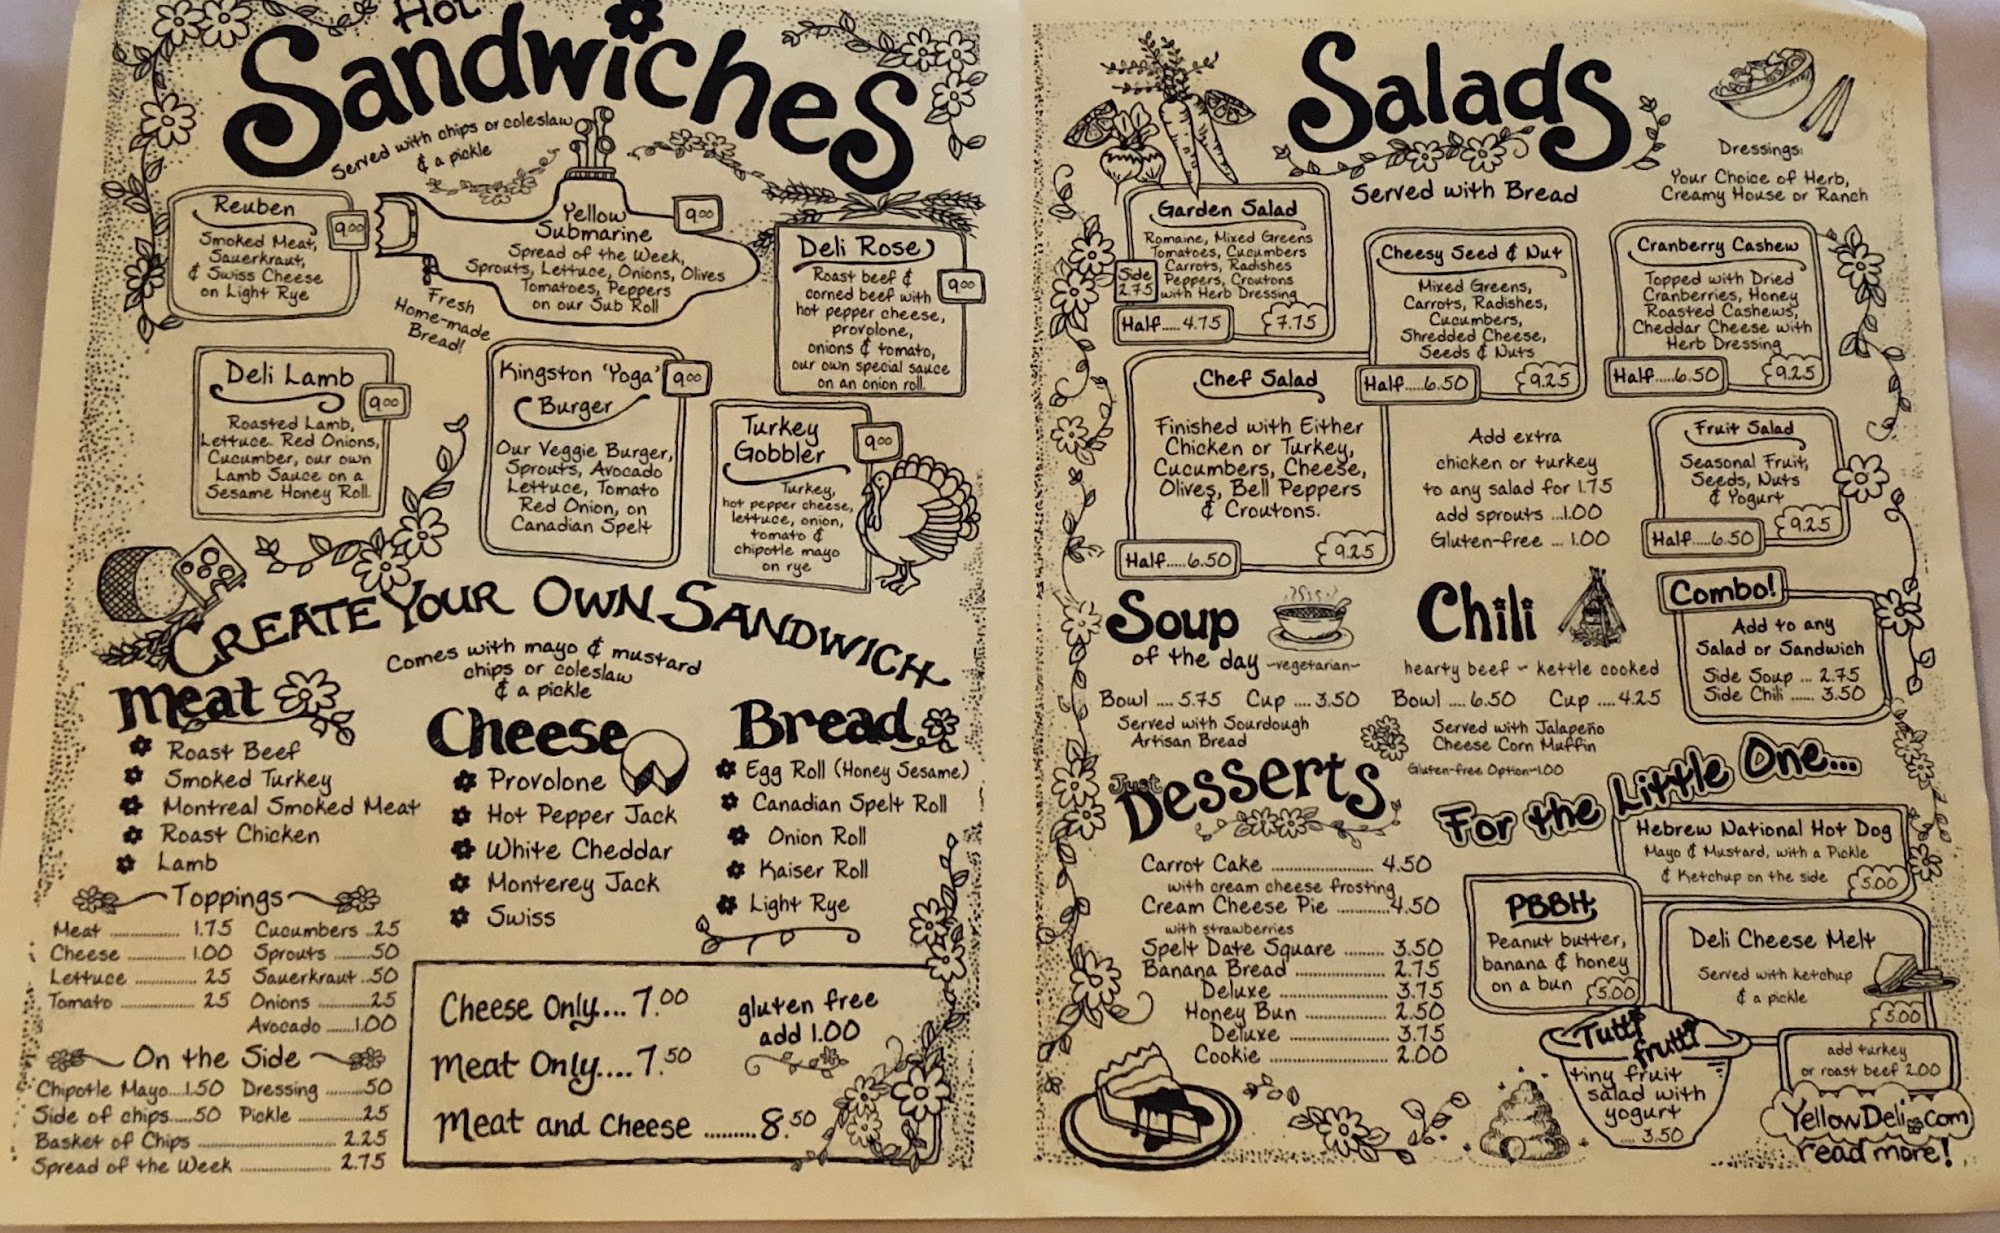 Hot
Sandwiches
Served with chips or coleslaw
& a pickle
Reuben
9.00
Smoked Meat,
Sauerkraut,
& Swiss Cheese
on Light Rye
Yellow
Submarine
9.00
Spread of the Week,
Sprouts, Lettuce, Onions, Olives
Tomatoes, Peppers
on our Sub Roll
Fresh
Home-made
Bread!
Deli Rose
9.00
Roast beef &
corned beef with
hot pepper cheese,
provolone,
onions & tomato,
our own special sauce
on an onion roll.
Deli Lamb
9.00
Roasted Lamb,
Lettuce. Red Onions,
Cucumber, our own
Lamb Sauce on a
Sesame Honey Roll.
Kingston 'Yoga'
Burger
9.00
Our Veggie Burger,
Sprouts, Avocado
Lettuce, Tomato
Red Onion, on
Canadian Spelt
Turkey
Gobbler
9.00
Turkey,
hot pepper cheese,
lettuce, onion,
tomato &
chipotle mayo
on rye
Create Your Own Sandwich
Comes with mayo & mustard
chips or coleslaw
& a pickle
Meat
Roast Beef
Smoked Turkey
Montreal Smoked Meat
Roast Chicken
Lamb
Cheese
Provolone
Hot Pepper Jack
White Cheddar
Monterey Jack
Swiss
Bread
Egg Roll (Honey Sesame)
Canadian Spelt Roll
Onion Roll
Kaiser Roll
Light Rye
Toppings
Meat ............ 1.75 Cucumbers ..25
Cheese .......... 1.00 Sprouts ........50
Lettuce ............ 25 Sauerkraut ..50
Tomato ............ 25 Onions .........25
Avocado ......1.00
On the Side
Chipotle Mayo....1.50 Dressing ......50
Side of chips.....50 Pickle ............25
Basket of Chips .................... 2.25
Spread of the Week .............. 2.75
Cheese Only.... 7.00
Meat Only.... 7.50
Meat and Cheese ......... 8.50
gluten free
add 1.00
Salads
Served with Bread
Dressings:
Your Choice of Herb,
Creamy House or Ranch
Garden Salad
Romaine, Mixed Greens
Tomatoes, Cucumbers
Carrots, Radishes
Peppers, Croutons
with Herb Dressing
Side
2.75
Half.....4.75
7.75
Cheesy Seed & Nut
Mixed Greens,
Carrots, Radishes,
Cucumbers,
Shredded Cheese,
Seeds & Nuts
Half.....6.50
9.25
Cranberry Cashew
Topped with Dried
Cranberries, Honey
Roasted Cashews,
Cheddar Cheese with
Herb Dressing
Half.....6.50
9.25
Chef Salad
Finished with Either
Chicken or Turkey,
Cucumbers, Cheese,
Olives, Bell Peppers
& Croutons.
Half.....6.50
9.25
Add extra
chicken or turkey
to any salad for 1.75
add sprouts ...1.00
Gluten-free ... 1.00
Fruit Salad
Seasonal Fruit,
Seeds, Nuts
& Yogurt
Half.....6.50
9.25
Soup
of the day ~vegetarian~
Bowl .... 5.75 Cup .... 3.50
Served with Sourdough
Artisan Bread
Chili
hearty beef ~ kettle cooked
Bowl .... 6.50 Cup .... 4.25
Served with Jalapeño
Cheese Corn Muffin
Gluten-free Option~1.00
Combo!
Add to any
Salad or Sandwich
Side Soup ... 2.75
Side Chili ...... 3.50
Just
Desserts
Carrot Cake .................... 4.50
with cream cheese frosting
Cream Cheese Pie ...........4.50
with strawberries
Spelt Date Square ......... 3.50
Banana Bread ................ 2.75
Deluxe .................... 3.75
Honey Bun ................ 2.50
Deluxe .................... 3.75
Cookie ..................... 2.00
For the Little One...
Hebrew National Hot Dog
Mayo & Mustard, with a Pickle
& Ketchup on the side
5.00
PBBH,
Peanut butter,
banana & honey
on a bun
5.00
Deli Cheese Melt
Served with ketchup
& a pickle
5.00
add turkey
or roast beef 2.00
Tutti
frutti
tiny fruit
salad with
yogurt
.... 3.50
YellowDeli.com
read more!